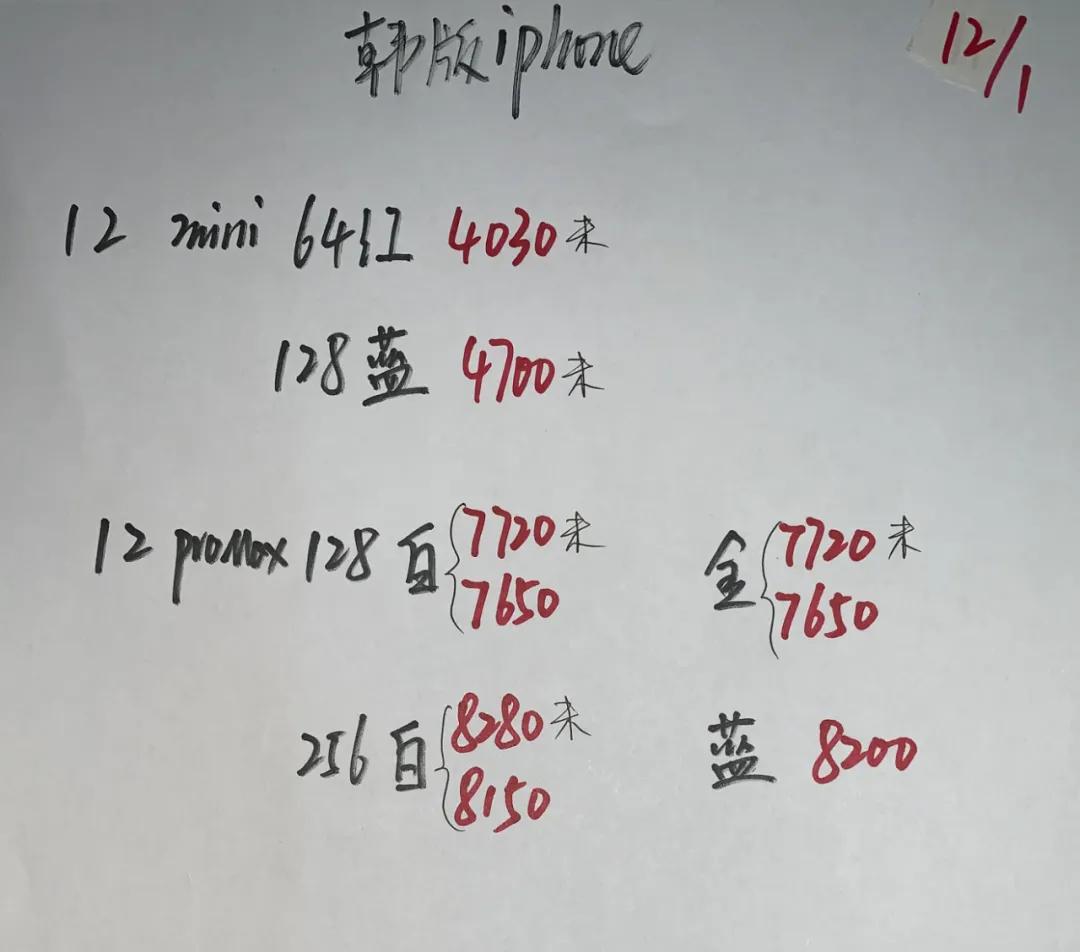 韩版iphone
12/1
12 mini 64红 4030未
128蓝 4700未
12 proMax 128 白 7720未 金 7720未
7650 7650
256 白 8280未 蓝 8200
8150